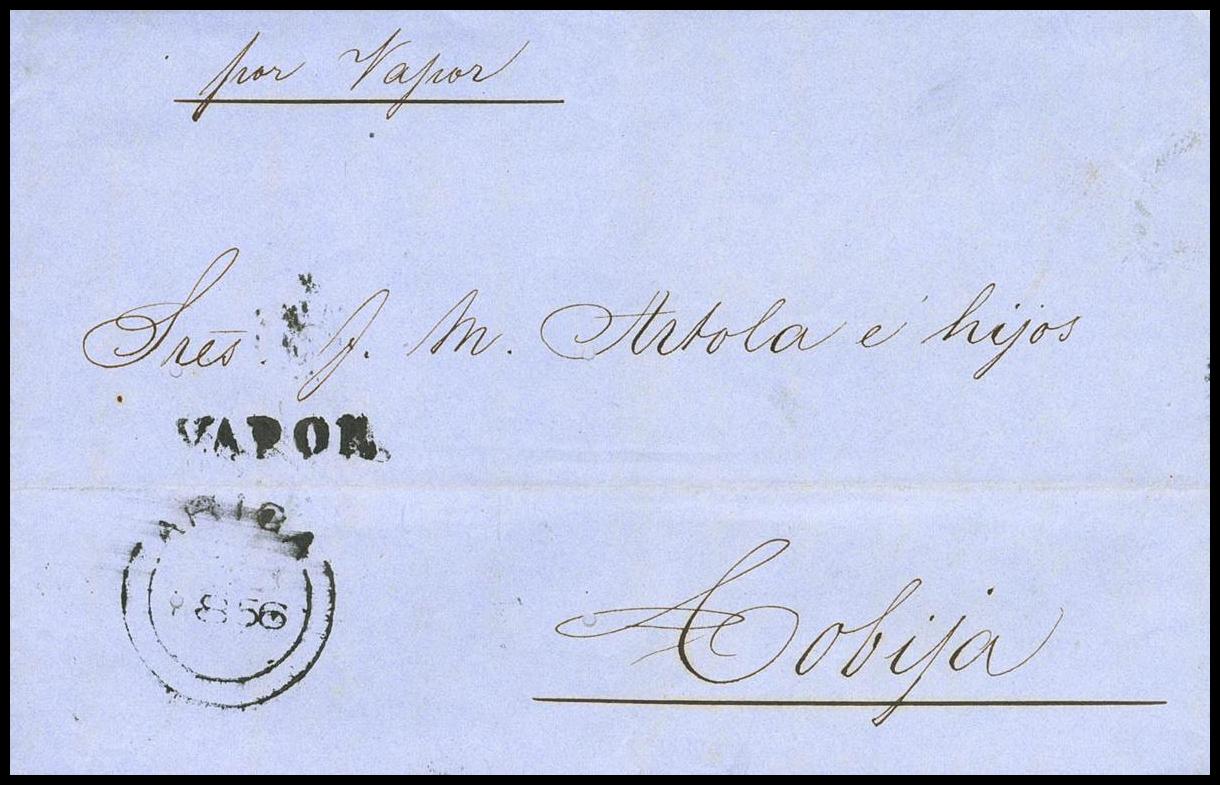 por Vapor
Sres. J. M. Artola é hijos
VAPOR.
ARICA
8 56
Cobija